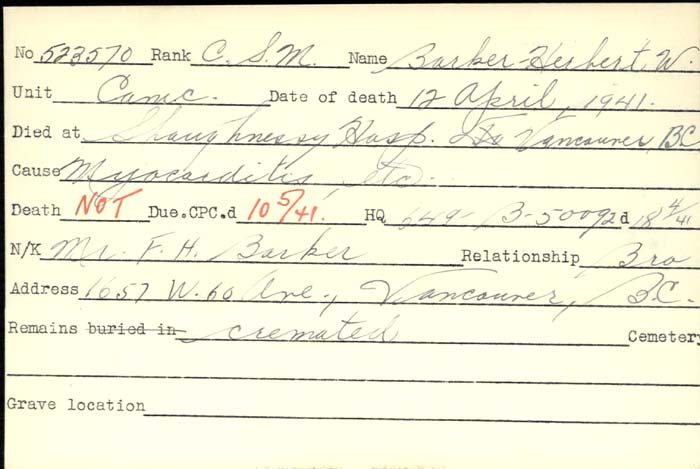 No 523570 Rank C. S. M. Name Barker-Herbert W.
Unit Camc. Date of death 12 April, 1941.
Died at Shaughnessy Hosp. Vancouver, BC
Cause Myocarditis, etc.
Death NOT Due.CPC.d 10 5/41. HQ 649- B-50092 d 18 4/41
N/K Mr. F. H. Barker Relationship Bro
Address 1657 W. 60 Ave., Vancouver, B.C.
Remains buried in cremated Cemetery
Grave location